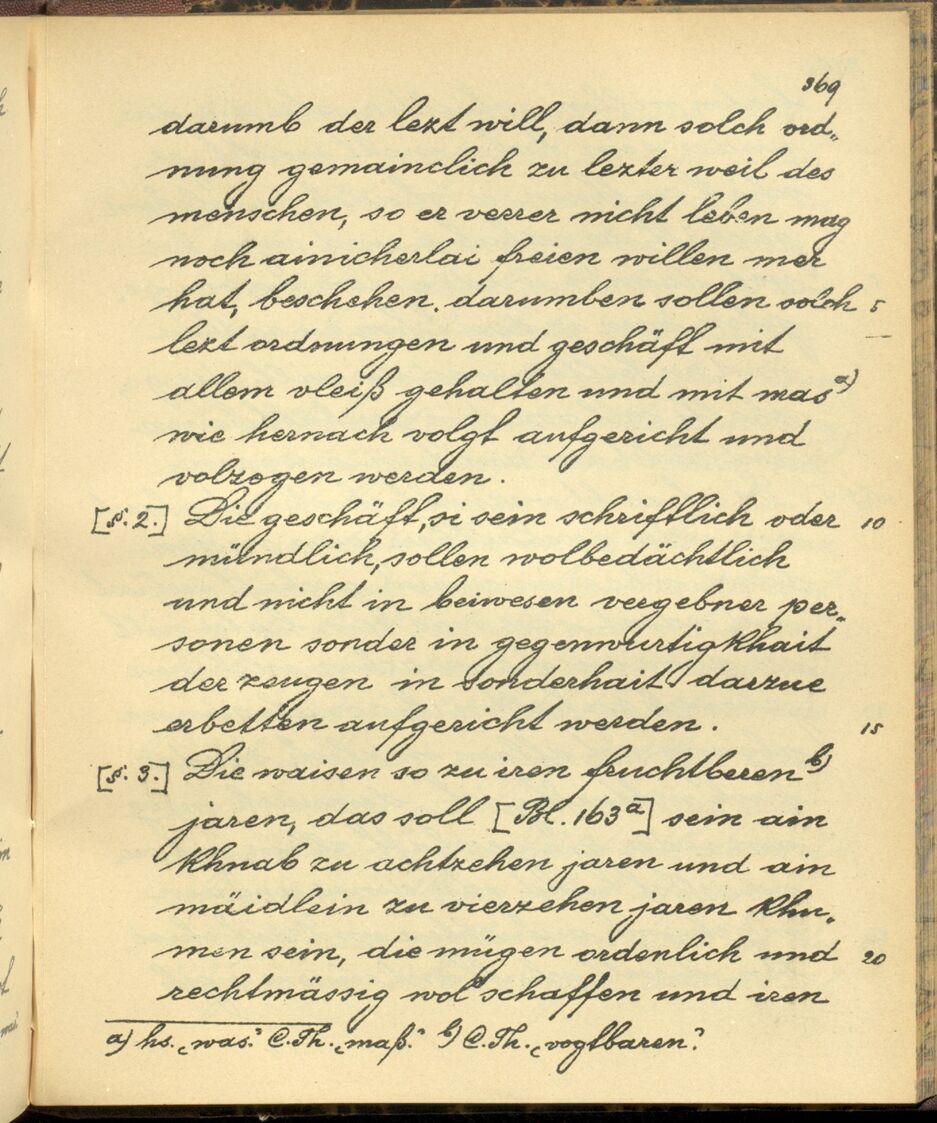 369
darumb der lezt will, dann solch ord„
nung gemainclich zu lezter weil des
menschen, so er verrer nicht leben mag
noch ainicherlai freien willen mer
hat, beschehen. darumben sollen solch 5
lezt ordnungen und geschäft mit
allem vleiß gehalten und mit mas a)
wie hernach volgt aufgericht und
volzogen werden.
[§. 2.] Die geschäft, si sein schriftlich oder 10
mündlich, sollen wolbedächtlich
und nicht in beiwesen vergebner per„
sonen sonder in gegenwurtigkhait
der zeugen in sonderhait darzue
erbetten aufgericht werden. 15
[§. 3.] Die waisen so zu iren fruchtberen b)
jaren, das soll [Bl. 163a] sein ain
khnab zu achtzehen jaren und ain
mäidlein zu vierzehen jaren khu„
men sein, die mügen ordenlich und 20
rechtmässig wol schaffen und iren
a) hs. „was.“ C. Th. „maß.“ b) C. Th. „vogtbaren.“